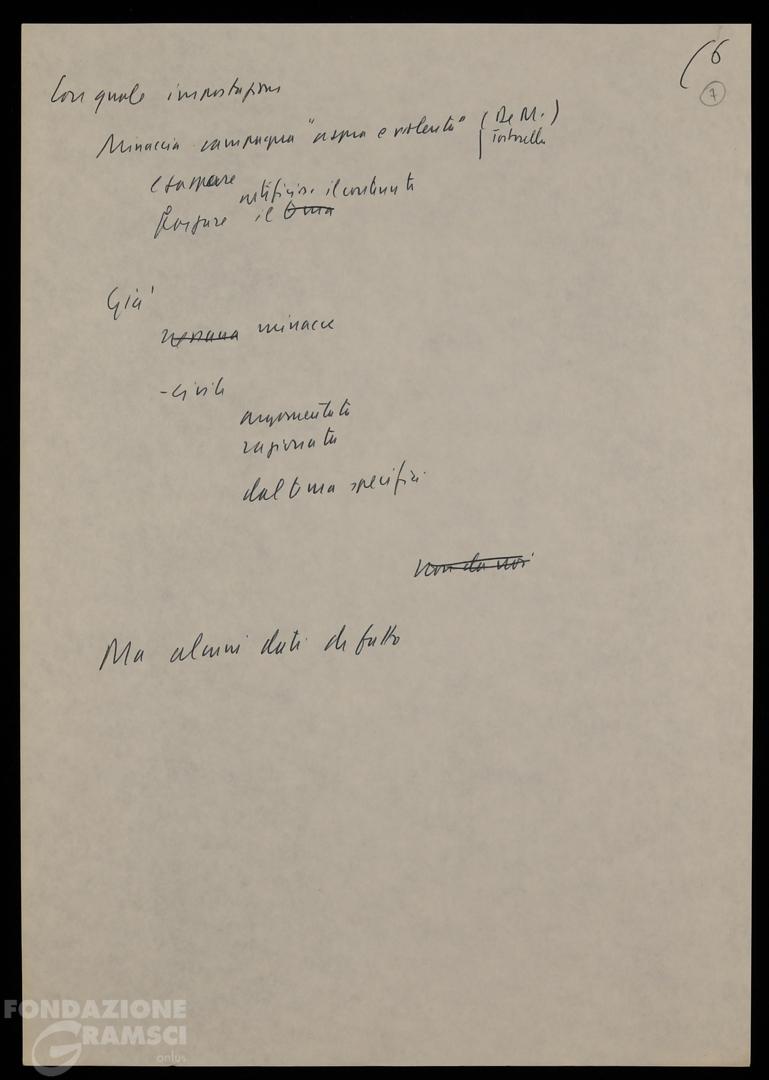 (6
7
Con quale impostazione
Minaccia campagna "aspra e violenta" (De M.)
Tortorella
esasperare
artificios. il contenuto
forzare il tema
Già
nessuna minacce
- civile
argomentata
ragionata
dal tema specifico
non da noi
Ma alcuni dati di fatto
FONDAZIONE
GRAMSCI
onlus